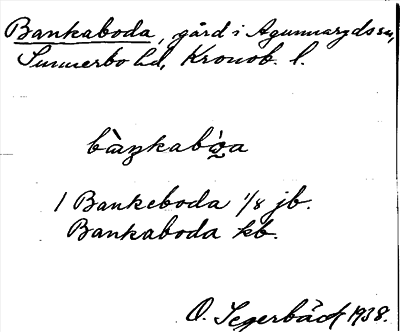 Bankaboda, gård i Agunnaryds sn,
Sunnerbo hd, Kronob. l.
1 Bankeboda 1/8 jb.
Bankaboda kb.
O. Segerbäck 1938.